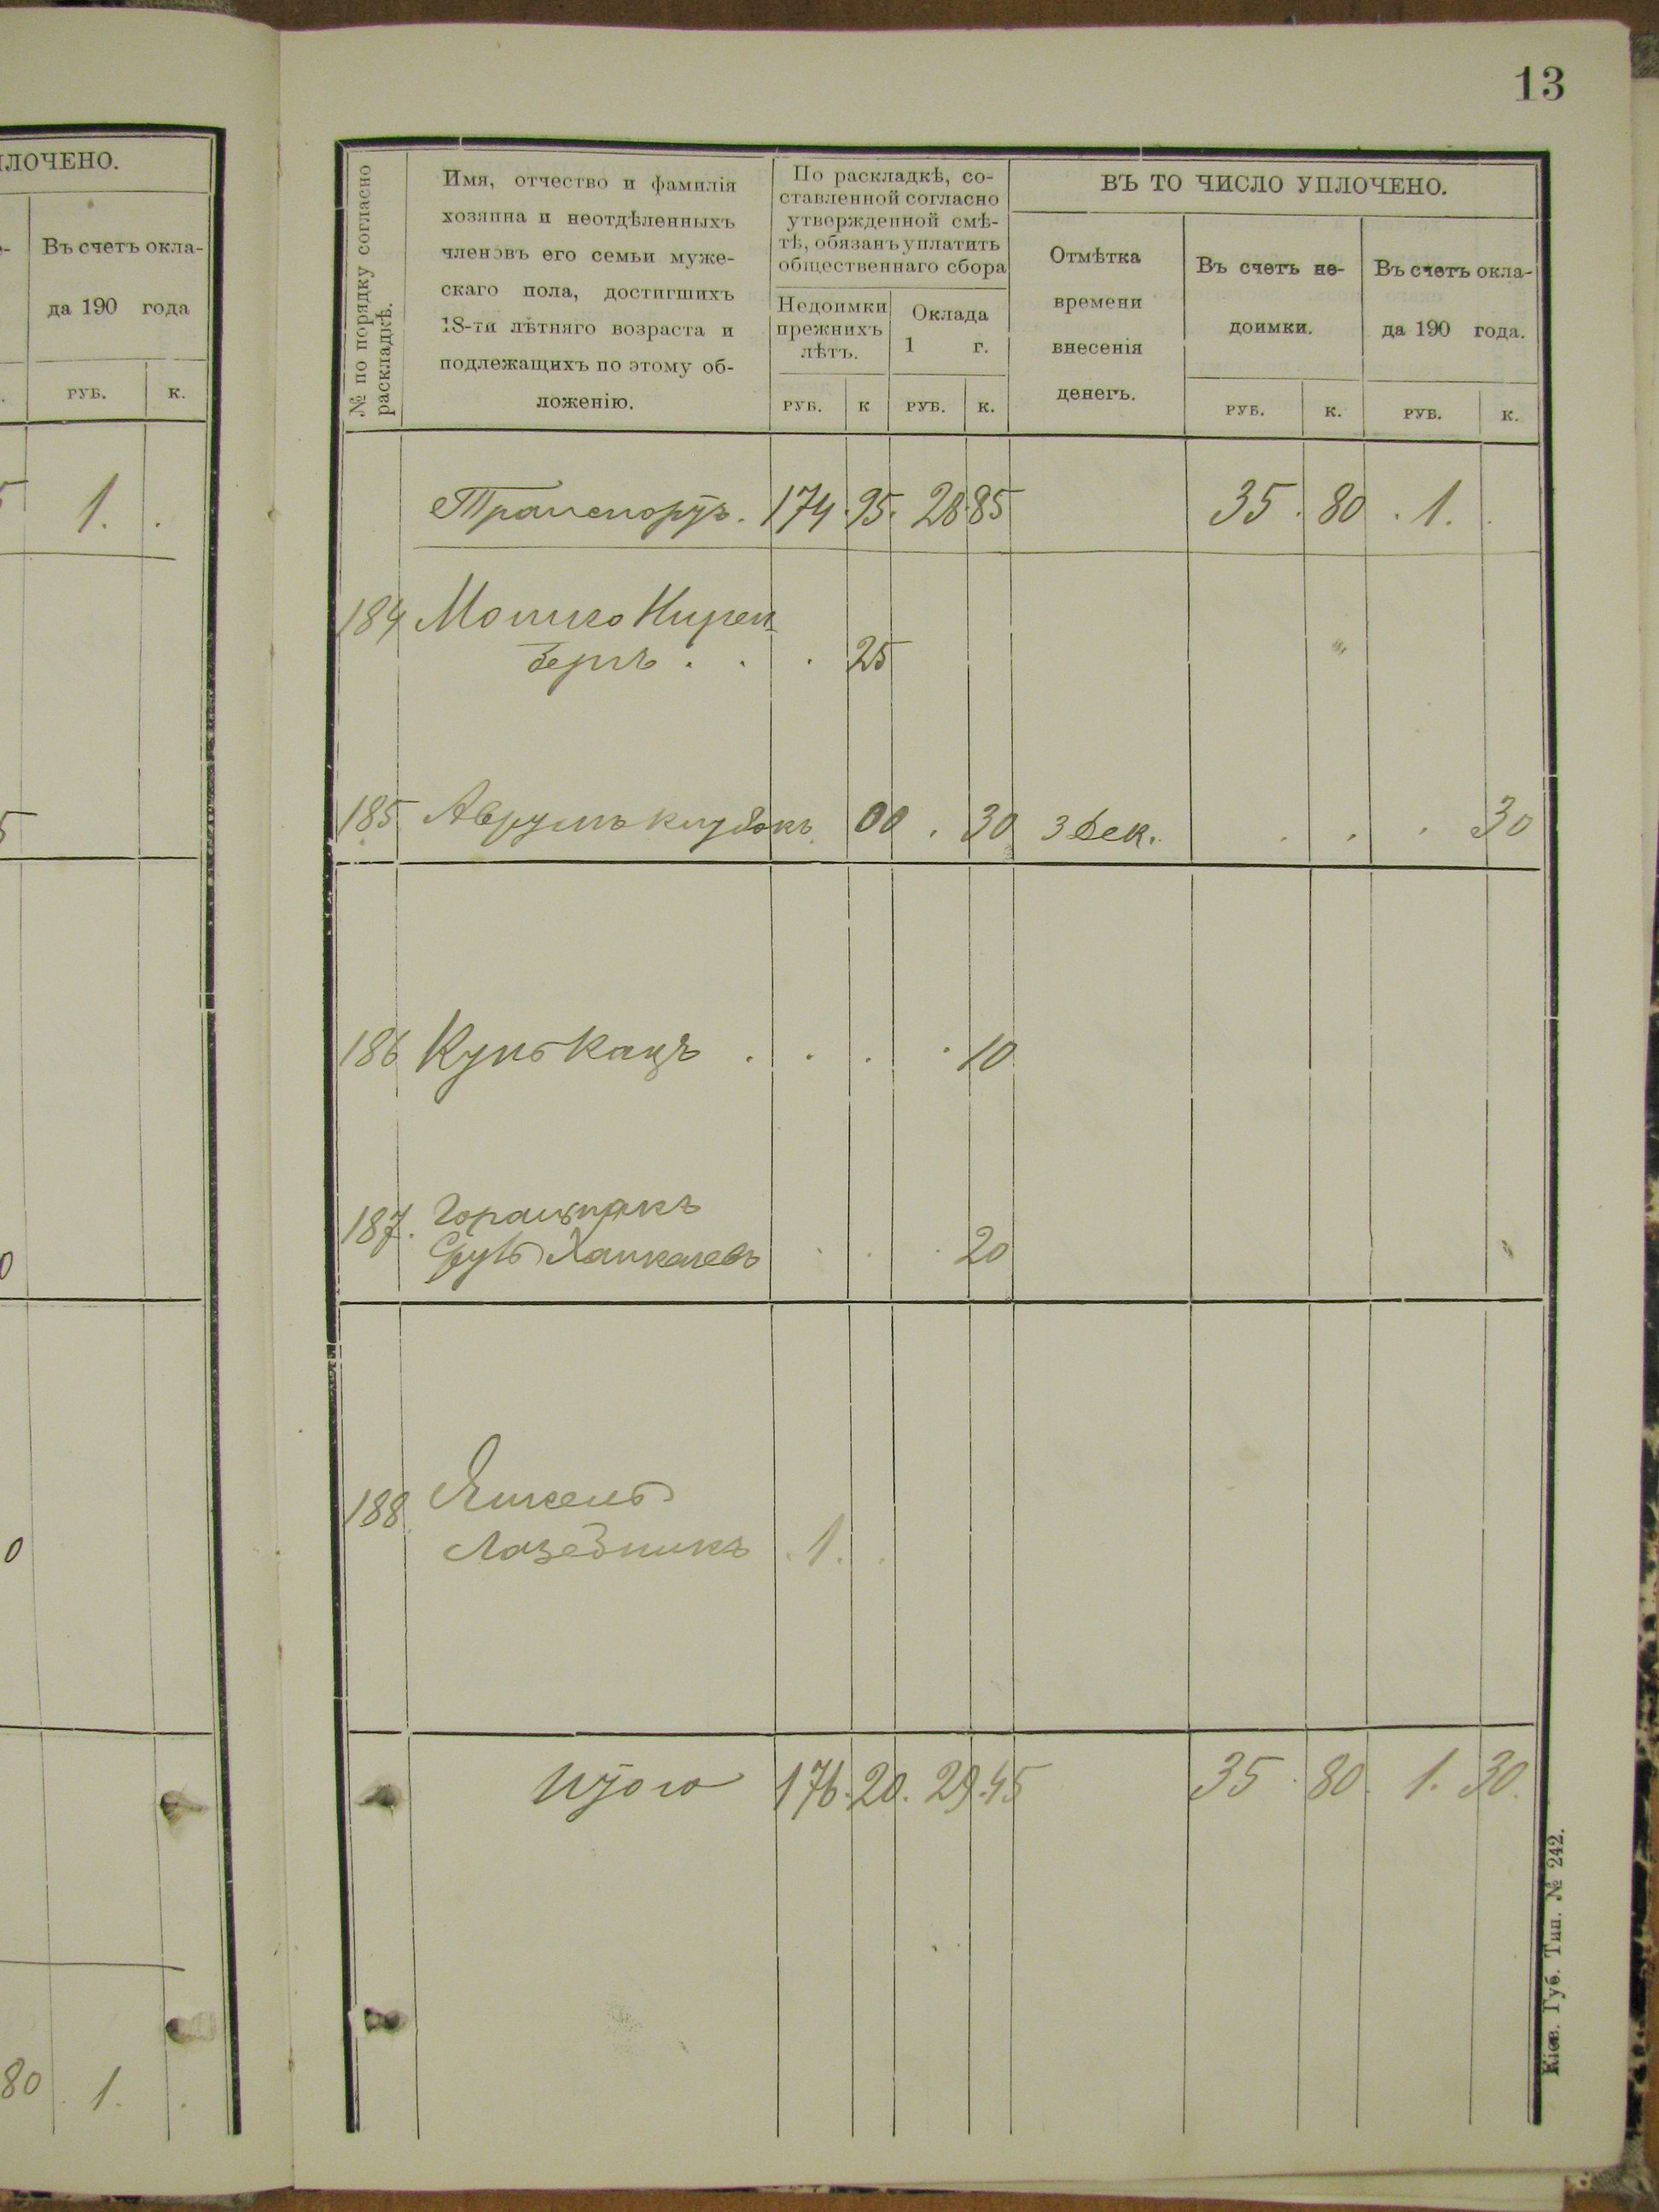 13
ПЛОЧЕНО.
Въ счетъ окла-
да 190 года
РУБ. К.
1. .
80 1. .
№ по порядку согласно
раскладкѣ.
Имя, отчество и фамилія
хозяина и неотдѣленныхъ
членовъ его семьи муже-
скаго пола, достигшихъ
18-ти лѣтняго возраста и
подлежащихъ по этому об-
ложенію.
По раскладкѣ, со-
ставленной согласно
утвержденной смѣ-
тѣ, обязанъ уплатить
общественнаго сбора
Недоимки
прежнихъ
лѣтъ.
Оклада
1 г.
РУБ. К РУБ. К.
ВЪ ТО ЧИСЛО УПЛОЧЕНО.
Отмѣтка
времени
внесенія
денегъ.
Въ счетъ не-
доимки.
РУБ. К.
Въ счетъ окла-
да 190 года.
РУБ. К.
Транспортъ. 174. 95. 28 85 35. 80 . 1. .
184 Мошко Нирен
бергъ . . . 25
185 Аврумъ 00 . 30 3 дек. . . . 30
186 Купъ Кацъ . . . . 10
187.
. . . 20
188 Янкель
Лазебникъ . 1. .
Итого 176. 20. 29. 45 35. 80. 1. 30.
Кіев. Губ. Тип. № 242.